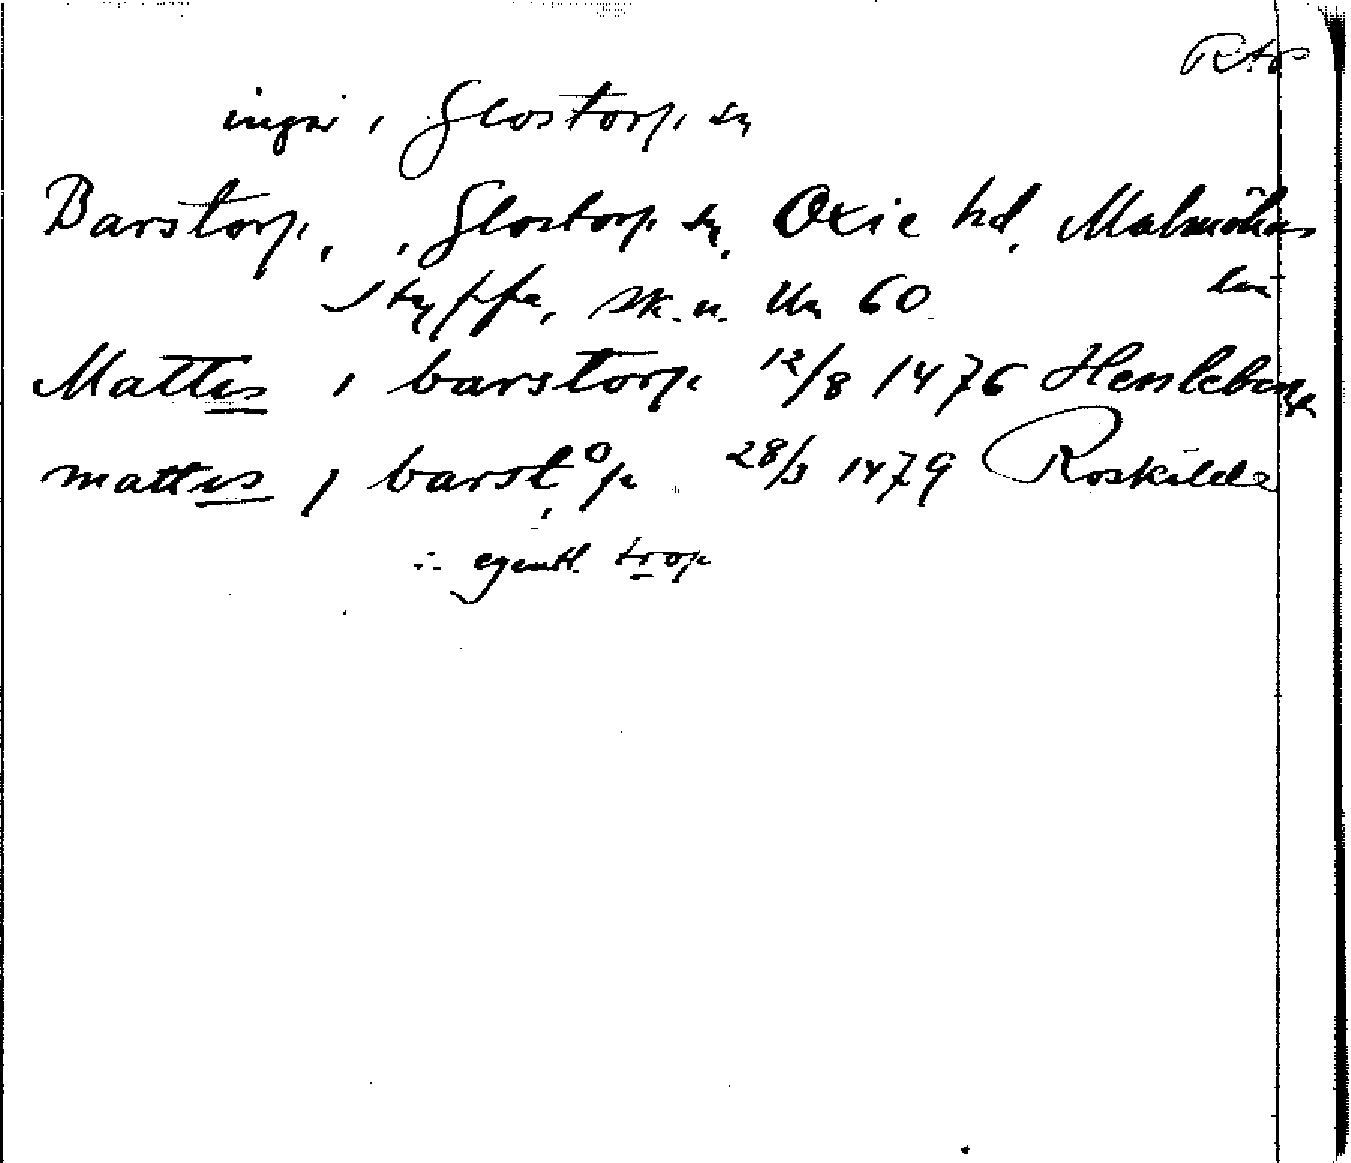 RAP
ingår i Glostorp, sn
Barstorp, i Glostorp sn, Oxie hd, Malmöhus
län
Styffe, Sk. u. Un 60
Mattes i barstorp 12/8 1476
mattes i barst°p 28/3 1479 Roskilde
: egentl. trop